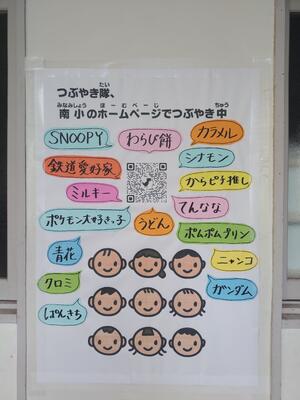 つぶやき隊、
南小のホームページでつぶやき中
SNOOPY
わらび餅
カラメル
鉄道愛好家
シナモン
ミルキー
からピチ推し
てんなな
ポケモン大好きっ子
うどん
ポムポムプリン
青花
ニャンコ
クロミ
ガンダム
ぱんきち